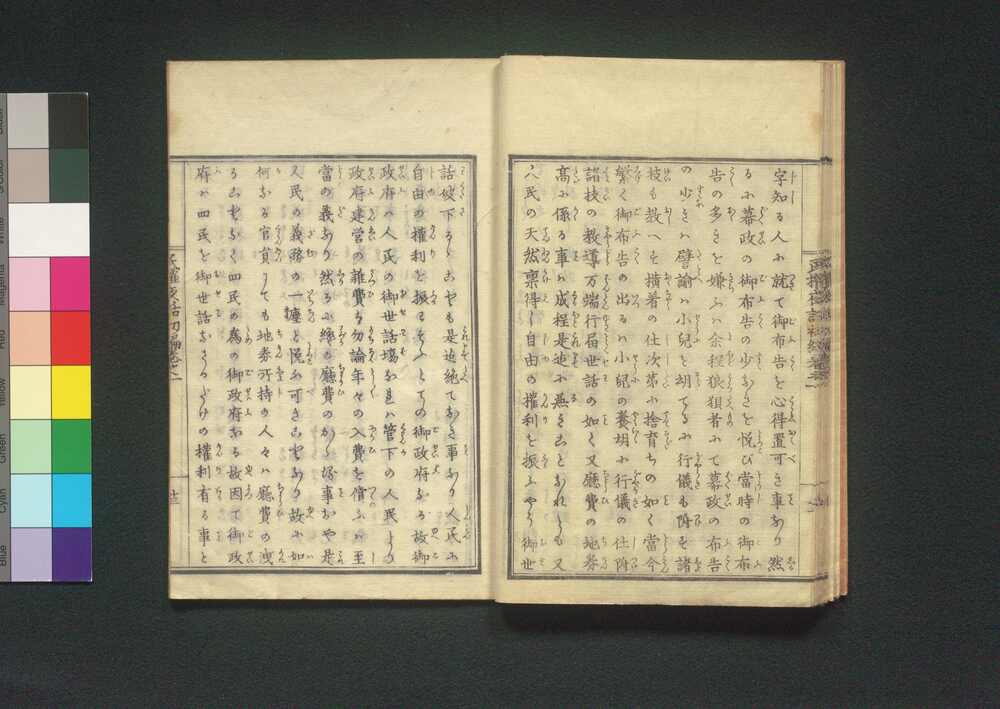 字知る人に就て御布告を心得置可き事なり然
るに幕政の御布告の少なきを悦び當時の御布
告の多きを嫌ふハ余程狼狽者にて幕政の布告
の少きハ譬諭ハ小兒と胡てるに行儀も附ず諸
技も教へを横着の仕次第に捨育ちの如く當今
繁く御布告の出るハ小兒の養胡に行儀の仕附
諸技の教導万端行届世話の如く又廳費の地券
高に係る事ハ成程是迄に無きことなれども又
人民の天然稟得し自由の權利を振ふやう御世
話被下ることも是迄絶てなき事なり人民に
自由の權利を振はそふとての御政府なる故御
政府ハ人民の御世話塲なれハ管下の人民より
政府建營の雜費ハ勿論年々の入費を償ふハ至
當の義なり然るに縣廳費のかゝる事おや是
人民の義務の一廉と悦ふ可きことなり故に如
何なる官員にても地券所持の人々ハ廳費の洩
ることなく四民の爲の御政府なる故因て御政
府ハ四民を御世話なさるだけの權利有る事と
民權夜話初編卷之一
Black
3/Color
White
Magenta
Red
Yellow
Green
Cyan
Blue